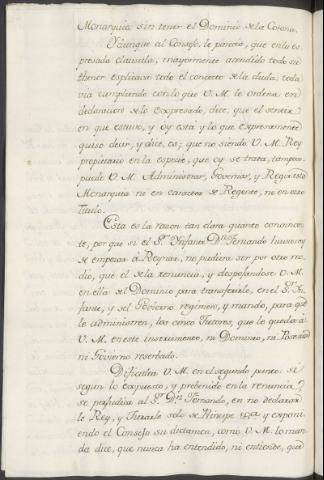 Monarquia sin tener el Dominio de la Corona.
Y aunque al Consejo, le parecia, que en la ex-
presada clausula, mayormente atendido todo su
thenor explicava todo el concepto de la duda; toda
via cumpliendo con lo que V. M. le ordena en
declaracion de lo Expresado, dice, que el sentir
en que estuvo, y oy esta y lo que expresamente
quiso decir, y dice, es; que no siendo V. M. Rey
propietario en la especie, que oy se trata, tampoco
puede V. M. Administrar, Governar, y Regir esta
Monarquia ni en caracter de Regente, ni en otro
titulo.
Esta es la razon tan clara quanto convincen-
te, por que si el S.r Infante D.n Fernando huviese
de empezar à Reynar, no pudiera ser por otro me-
dio, que el de la renuncia, y desposandose V. M.
en ella del Dominio para transferirle, en el S.r In-
fante, y del Govierno regimen, y mando, para que
le administren, los cinco Tutores, que le quedó à
V. M. en este instrumento, ni Dominio, ni Posesion
ni Govierno reservado.
Dificulta V. M. en el segundo punto: si
segun lo expuesto, y prebenido en la renuncia
se perjudica al S.r D.n Fernando, en no declarar
le Rey, y Jurarle solo de Principe y exponi-
endo el Consejo su dictamen, como V. M. lo man-
da dice, que nunca ha entendido, ni entiende, que